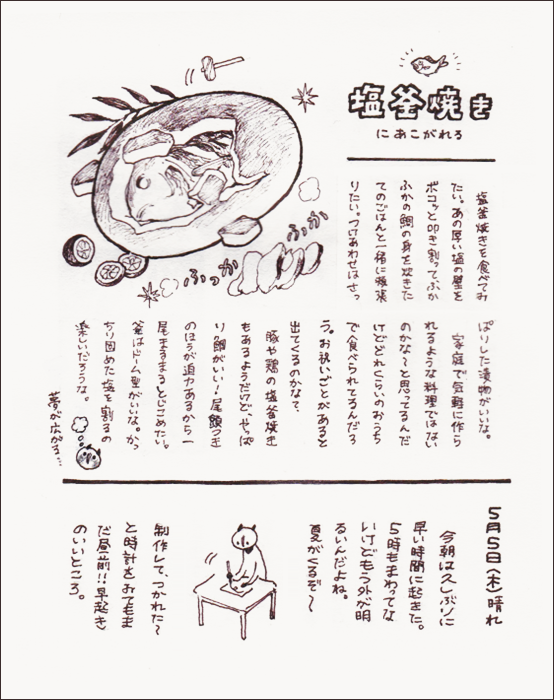 塩釜焼き
にあこがれる
塩釜焼きを食べてみ
たい。あの厚い塩の壁を
ボコッと叩き割ってふか
ふかの鯛の身を炊きた
てのごはんと一緒に頬張
りたい。つけあわせはさっ
ぱりした漬物がいいな。
家庭で気軽に作ら
れるような料理ではない
のかな〜と思ってるんだ
けどどれくらいのおうち
で食べられてるんだろ
う。お祝いごとがあると
出てくるのかな?
豚や鶏の塩釜焼き
もあるようだけど、やっぱ
り鯛がいい!尾頭つき
のほうが迫力あるから一
尾まるまるとじこめたい。
釜はドーム型がいいな。かっ
ちり固めた塩を割るの
楽しいだろうな。
夢が広がる…
ふっか
ふか
5月5日(木)晴れ
今朝は久しぶりに
早い時間に起きた。
5時もまわってな
いけどもう外が明
るいんだよね。
夏がくるぞ〜
制作して、つかれた〜
と時計をみてもま
だ昼前!!早起き
のいいところ。